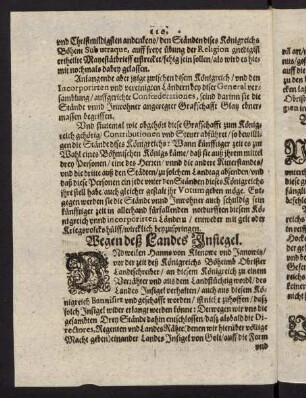 110.
vnd Christmildigsten andenckens/ den Ständen dises Königreichs
Böheim Sub utraque, auff freye übung der Religion gnedigist
ertheilter Mayestätbrieff erstrecke/ fehig sein sollen/ als wird es hie-
mit nochmals dabey gelassen.
Anlangende aber jetzo zwischen disem Königreich / vnd den
Incorporirten vnd vereinigten Ländern bey diser General ver-
samblung/ auffgerichte Confoederationes, seind darinn sie die
Stände vnnd Innwohner angeregter Graffschafft Glatz eb-
massen begriffen.
Vnd sintemal wie obgehört diese Graffschafft zum König-
reich gehörig Contributionen vnd Steuer abführt/ so bewilli-
gen die Stände dises Königreichs: Wann künfftiger zeit es zur
Wahl eines Böhmischen Königs käme/ daß sie auß jhrem mittel
drey Personen / eine des Herren / vnnd die andre Ritterstandes/
vnd die dritte auß den Städten/ zu solchem Landtag absenden/ vnd
daß diese Personen in jeder weder den Ständen dieses Königreichs
ihre stell habe/ auch gleicher gestalt ihr Votum geben möge. Ent-
gegen werden sie die Stände vnnd Innwohner auch schuldig sein
künfftiger zeit in allerhand fürfallenden notturfften diesem Kö-
nigreich vnnd incorporirten Ländern / entweder mit gelt oder
Kriegsvolcks hülff/ wircklich beyzuspringen.
Wegen deß Landes Insigel.
Nachdem weilen Hanns von Klenowe vnd Janowitz/
vor der zeit des Königreichs Böheimb Obrister
Landschreiber / an diesem Königreich zu einem
Verräther vnd auß dem Landflüchtig word/ der
Landes Insigel verhalten / auch auß diesem Kö-
nigreich Bannisiret vnd geschafft worden / ist nicht zuhoffen/ daß
solch Insigel wider erlangt werden könne: Derwegen wir vns die
gesambten Drey Stände dahin entschlossen/ daß alsobald die Di-
rectores, Regenten vnd Landes Räthe/ denen wir hierüber völlige
Macht geben/ einander Landes Insigel von Golt/ auff die Form
vnnd